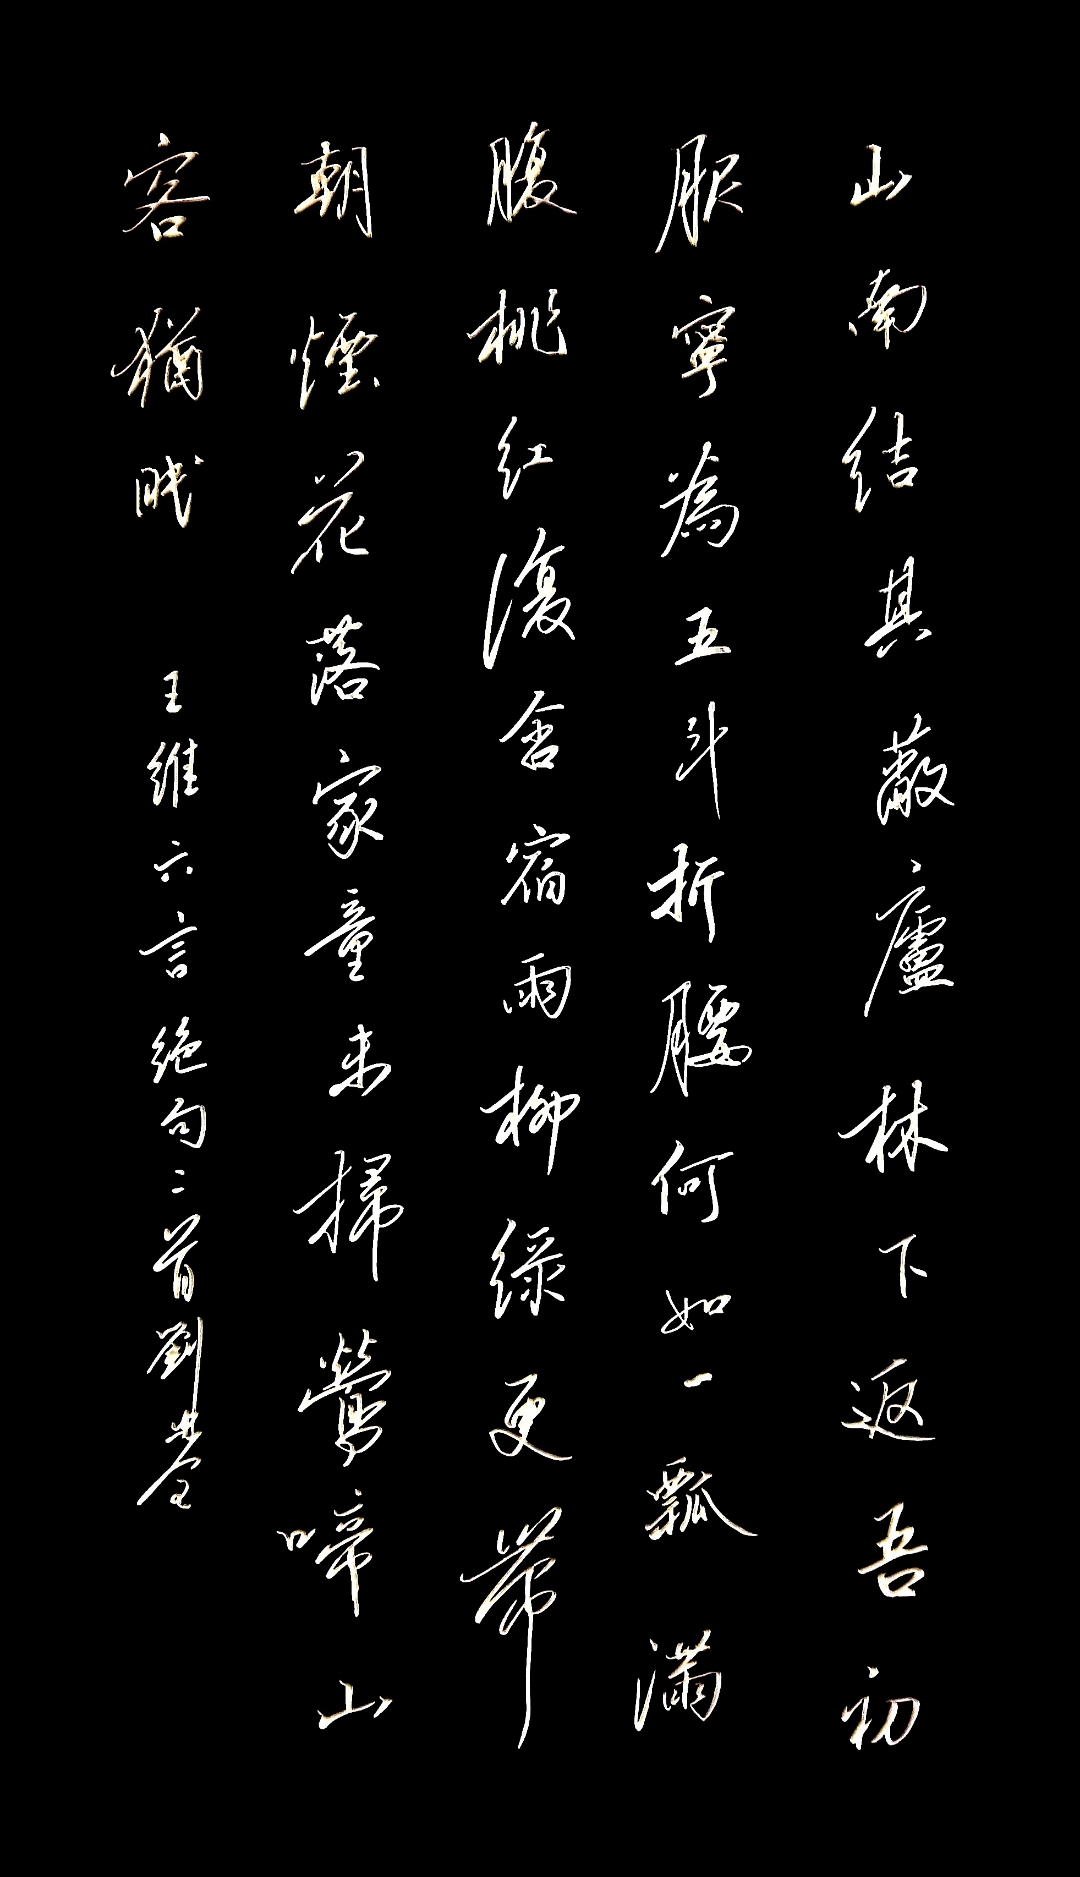 山南结其蔽廬林下返吾初
服寧為五斗折腰何如一瓢滿
腹桃红復含宿雨柳緑更带
朝煙花落家童未掃鶯啼山
客猶眠 王维六言绝句二首劉